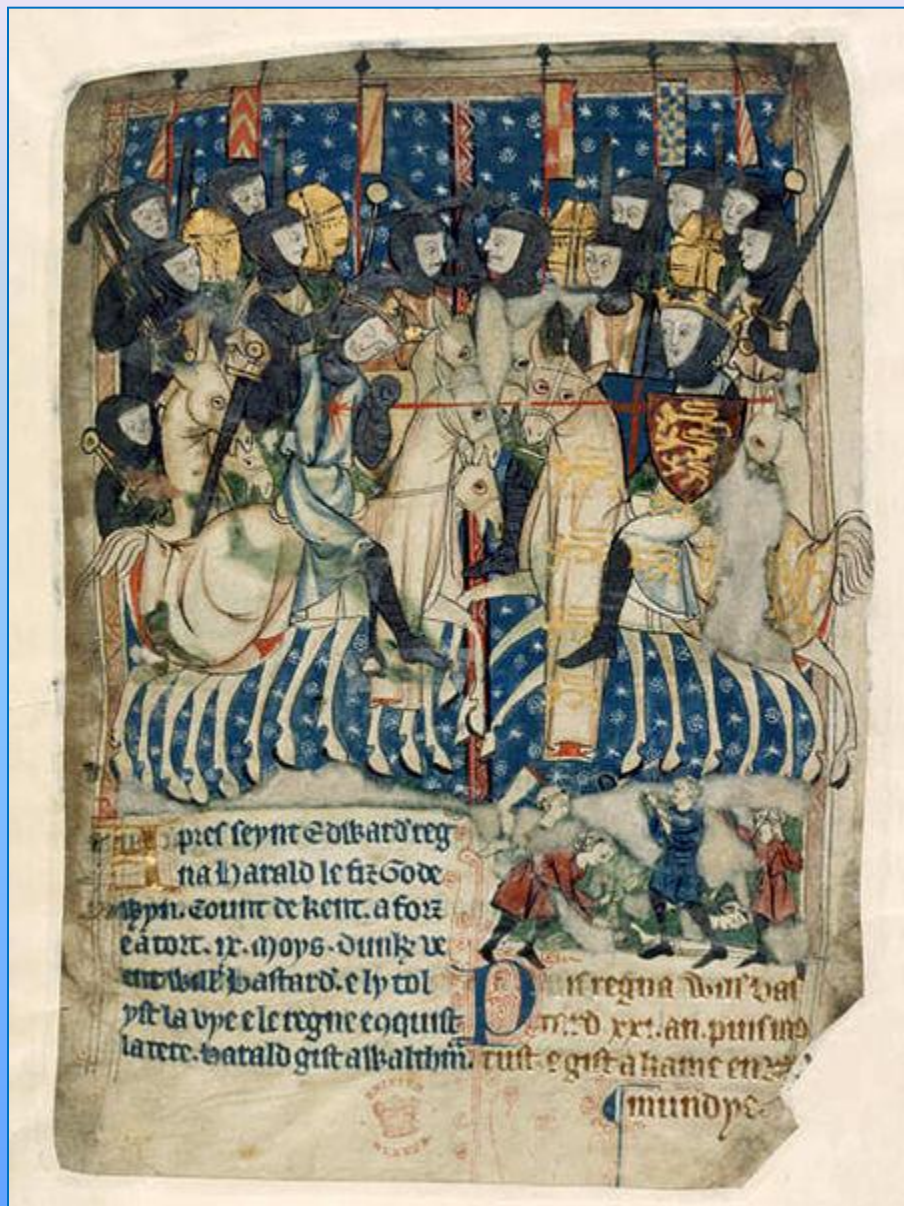 pres seynt Edward reg
na Harald le fiz Gode
wyn. Count de kent. a forz
e a tort. ix. Moys. Dunk ve
ent Will bastard. e ly tol
yst la vye e le regne conquist
la tere. Harald gist a Waltham.
Puis regna Will bas
tard xxi. an. puis mo
rust e gist a kame en
mundye.